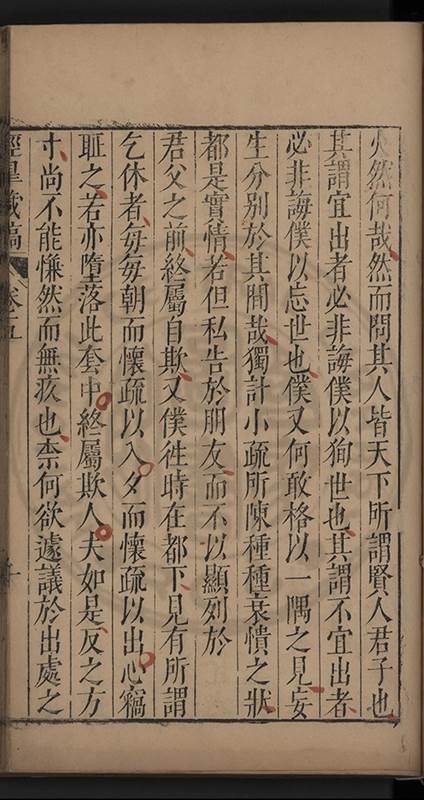 火然何哉然而問其人皆天下所謂賢人君子也
其謂宜出者必非誨僕以狥世也其謂不宜出者
必非誨僕以忘世也僕又何敢格以一隅之見妄
生分別於其間哉獨計小疏所陳種種衰憒之狀
都是實情若但私告於朋友而不以顯列於
君父之前終屬自欺又僕徃時在都下見有所謂
乞休者每每朝而懷疏以入夕而懷疏以出心竊
耻之若亦墮落此套中終屬欺人夫如是反之方
寸尚不能慊然而無疚也柰何欲遽議於出處之
涇臯藏稿 卷五 十